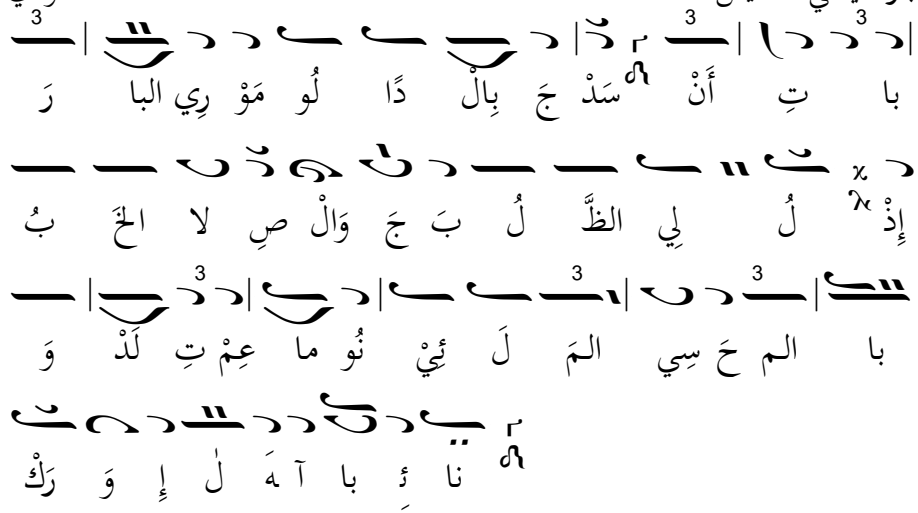 رَ البا رِي مَوْ لُو دًا بِالْ جَ سَدْ أَنْ تِ با
بُ الخَ لا صِ وَالْ جَ بَ لُ الظَّ لِي لُ إِذْ
وَ لَدْ تِ عِمْ ما نُو ئِيْ لَ المَ سِي حَ الم با
رَكْ وَ إِ لٰ هَ آ با ئِ نا